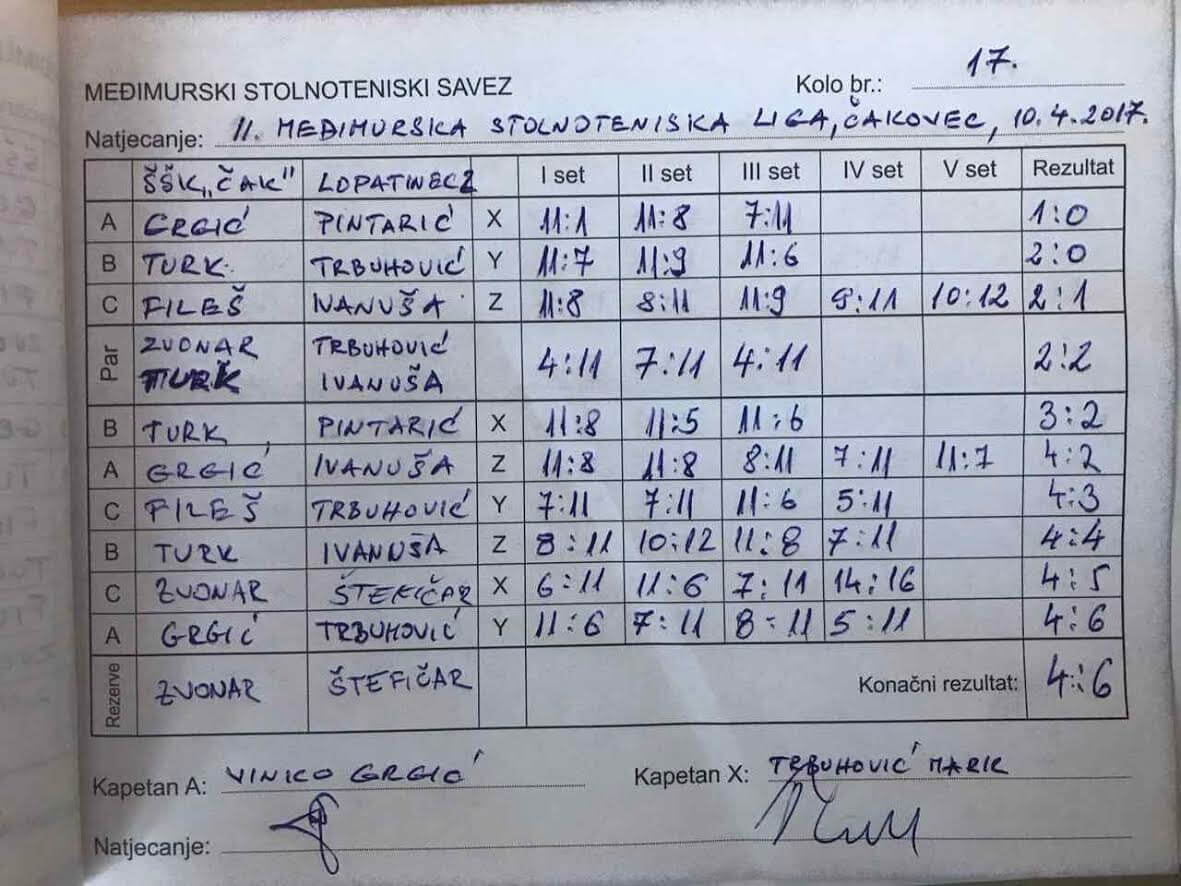 MEĐIMURSKI STOLNOTENISKI SAVEZ Kolo br.: 17.
Natjecanje: II. MEĐIMURSKA STOLNOTENISKA LIGA, ČAKOVEC, 10.4.2017.
ŠŠK „ČAK" LOPATINEC 2 I set II set III set IV set V set Rezultat
A GRGIĆ PINTARIĆ X 11:1 11:8 7:11 1:0
B TURK TRBUHOVIĆ Y 11:7 11:9 11:6 2:0
C FILEŠ IVANUŠA Z 11:8 8:11 11:9 9:11 10:12 2:1
Par ZVONAR TURK TRBUHOVIĆ IVANUŠA 4:11 7:11 4:11 2:2
B TURK PINTARIĆ X 11:8 11:5 11:6 3:2
A GRGIĆ IVANUŠA Z 11:8 11:8 8:11 7:11 11:7 4:2
C FILEŠ TRBUHOVIĆ Y 7:11 7:11 11:6 5:11 4:3
B TURK IVANUŠA Z 8:11 10:12 11:8 7:11 4:4
C ZVONAR ŠTEFIČAR X 6:11 11:6 7:11 14:16 4:5
A GRGIĆ TRBUHOVIĆ Y 11:6 7:11 8:11 5:11 4:6
Rezerve ZVONAR ŠTEFIČAR Konačni rezultat: 4:6
Kapetan A: VINKO GRGIĆ Kapetan X: TRBUHOVIĆ
Natjecanje: